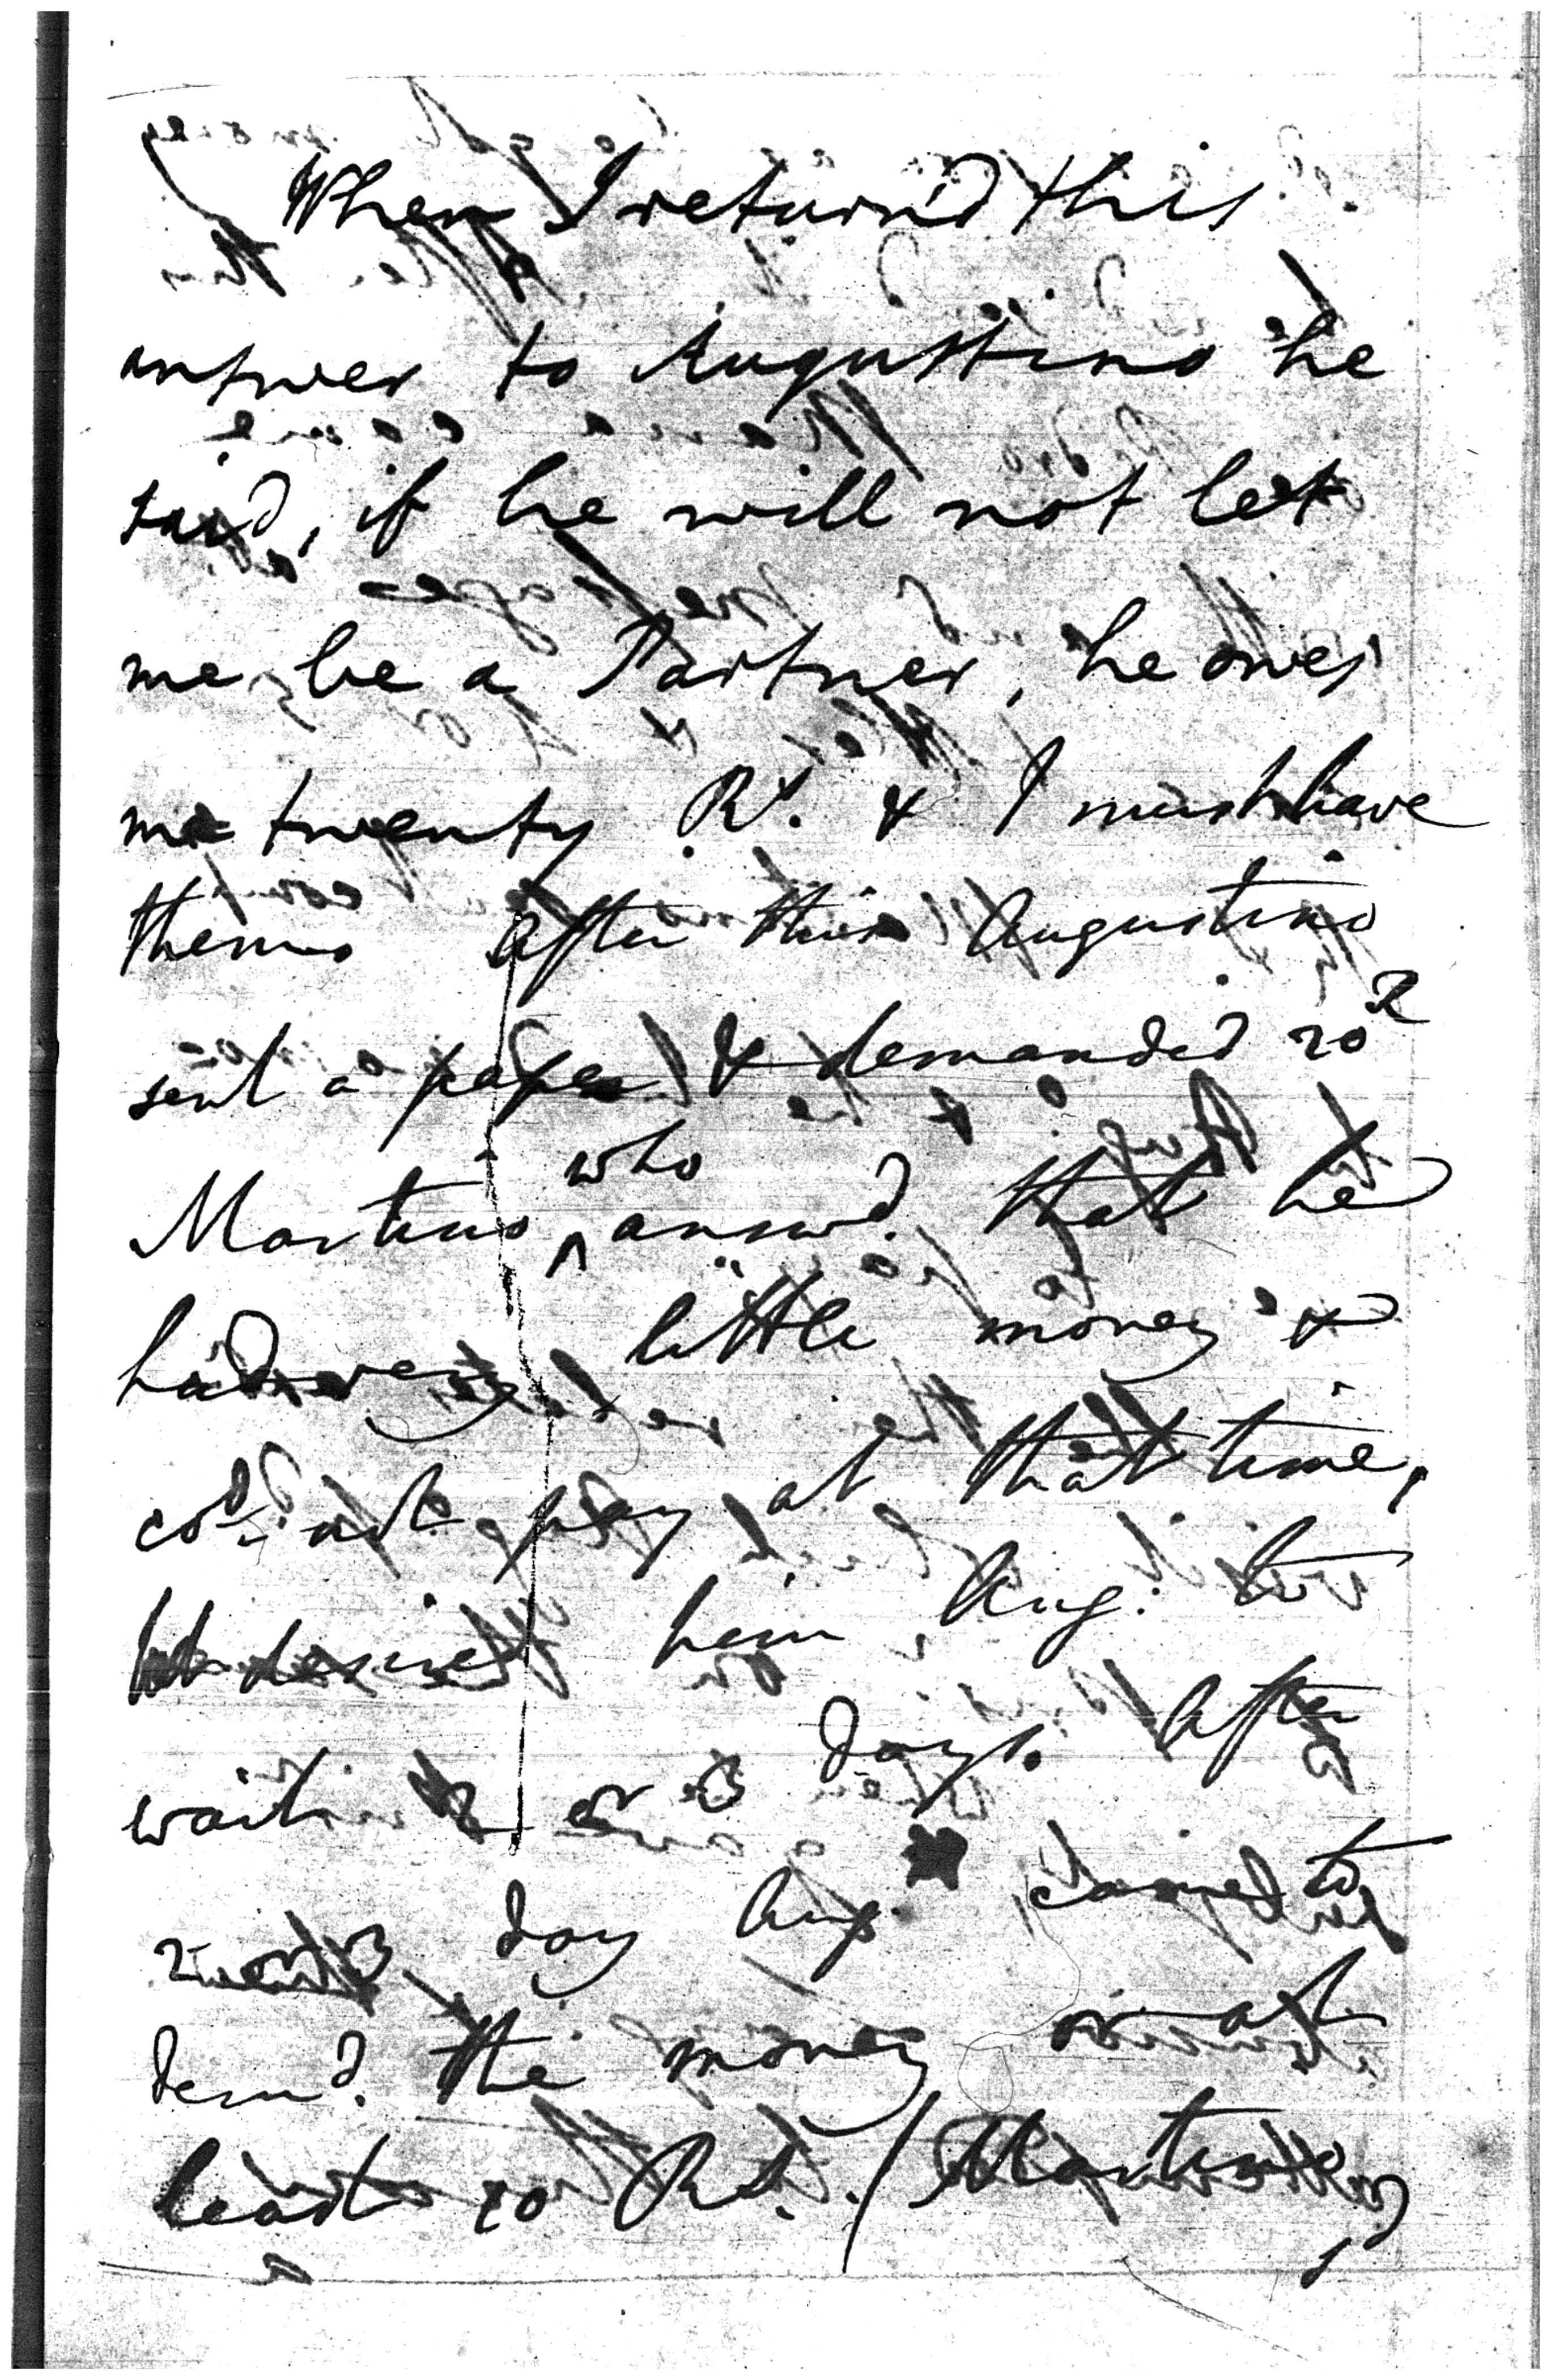 When I return'd this
answer to Augustino he
said, if he will not let
me be a Partner, he owes
me twenty Rs. & I must have
them After this Augustino
sent a paper & demanded 20 R
who
Martino ^ answd. that he
had very little money &
cod. not pay at that time,
but desired him Aug. to
wait 2 or 3 days. After
2 or 3 day Aug. came to
demd. the money or at
least 10 Rs. / Martino